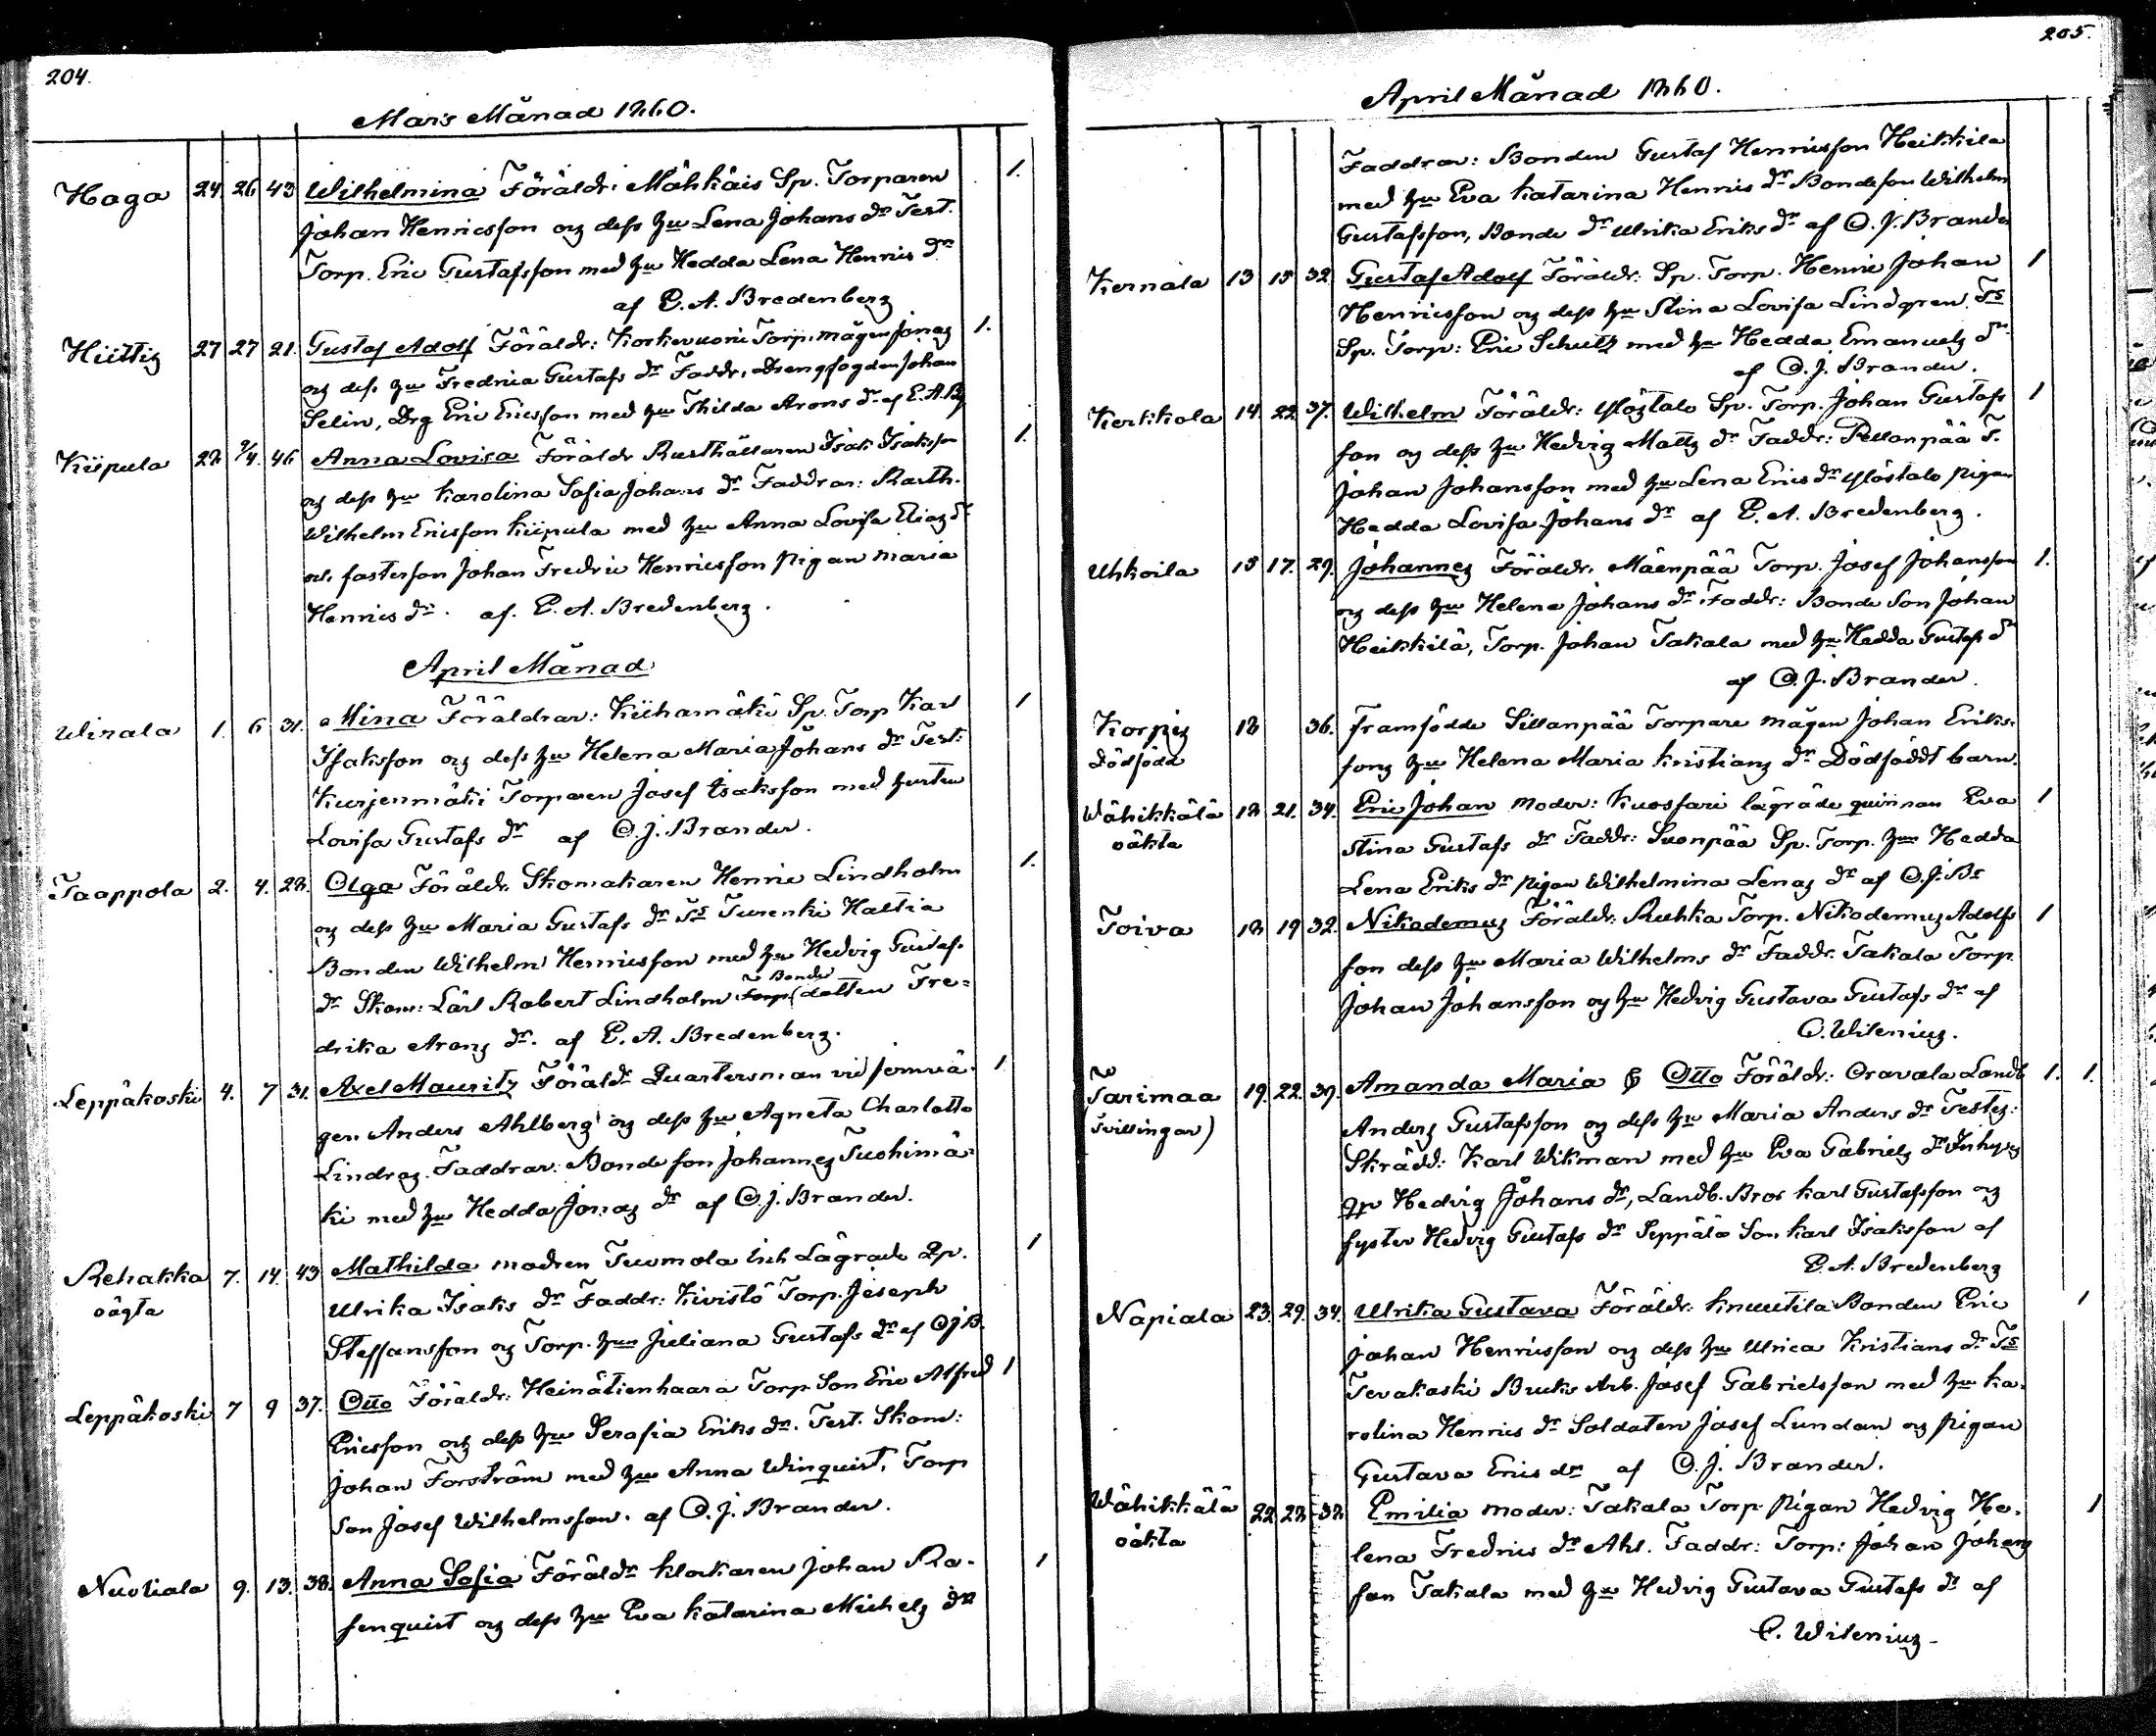 204.
Mars Månad 1860.
Haga 24. 26 43 Wilhelmina Föräldr: Mähkäis Sp. Torparen 1.
Johan Henricsson og dess hu Lena Johans dr Test.
Torp. Eric Gustafsson med hu Hedda Lena Henrics dr
af E. A. Bredenberg
Hiittis 27 27 21. Gustaf Adolf Föräldr: Torp. mågen Jonas 1.
og dess hu Fredrica Gustafs dr Faddr. Drengfogden Johan
Selin, Drg Eric Ericsson med hu Thilda Arons dr af E. A. Bg
Kiipula 28 2/4. 46 Anna Lovisa Föräldr Rusthållaren Isak Isaksson 1.
og dess hu Karolina Sofia Johans dr Faddrar: Rusth.
Wilhelm Ericsson Kiipula med hu Anna Lovisa Elias dr
och fosterson Johan Fredric Henricsson pigan Maria
Henrics dr. af. E. A. Bredenberg.
April Månad
Uirala 1. 6 31. Mina Föräldrar: Kiihamäki Sp. Torp Karl 1
Isaksson og dess hu Helena Maria Johans dr Test:
Kurjenmäki Torparen Josef Isaksson med hustru
Lovisa Gustafs dr af C. J. Brander.
Taappola 2. 4. 28. Olga Föräldr. Skomakaren Henric Lindholm 1.
og dess hu Maria Gustafs dr Ts Turenki Haltia
Bonden Wilhelm Henricsson med hu Hedvig Gustafs
dr Skom: Lärl Robert Lindholm Torp (Bonde dotten Fre=
drika Arons dr. af E. A. Bredenberg.
Leppäkoski 4. 7 31. Axel Mauritz Föräldr Quartersman vid jernvä- 1
gen Anders Ahlberg og dess hu Agneta Charlotta
Lindros. Faddrar: Bonde son Johannes Tuohimä-
ki med hu Hedda Jonas dr af C. J. Brander.
Rehakka 7. 14. 43 Mathilda modren Tuomola Inh Lägrade Qv. 1
oägta Ulrika Isaks dr Faddr: Kivistö Torp. Joseph
Steffansson og Torp. hun Juliana Gustafs dr af CJB.
Leppäkoski 7 9 37. Otto Föräldr: Heinätienhaara Torp Son Eric Alfred 1
Ericsson og dess hu Serafia Eriks dr. Test. Skom:
Johan Forström med hu Anna Winquist, Torp
Son Josef Wilhelmsson. af C. J. Brander.
Nuoliala 9. 13. 38. Anna Sofia Föräldr klockaren Johan Ro- 1
senquist og dess hu Eva Katarina Michels dr
205.
April Månad 1860.
Faddrar: Bonden Gustaf Henricsson Heikkila
med hu Eva Katarina Henrics dr Bondeson Wilhelm
Gustafsson, Bonde dr Ulrika Eriks dr af C. J. Brander
Kernala 13 15 32 Gustaf Adolf Föräldr: Sp. Torp. Henric Johan 1
Henricsson og dess hu Stina Lovisa Lindgren. Ts
Sp. Torp: Eric Schultz med hu Hedda Emanuels dr
af C. J. Brander.
Kerkkola 14. 22. 37. Wilhelm Föräldr: Ylöstalo Sp. Torp. Johan Gustafs 1
son og dess hu Hedvig Matts dr Faddr: Pellonpää T.
Johan Johansson med hu Lena Erics dr Ylöstalo pigan
Hedda Lovisa Johans dr af E. A. Bredenberg.
Uhkoila 15 17. 29. Johannes Föräldr. Mäenpää Torp. Josef Johansson 1.
og dess hu Helena Johans dr. Faddr: Bonde Son Johan
Heikkilä, Torp. Johan Takala med hu Hedda Gustafs dr
af C. J. Brander.
Korpis 18 36. Framfödde Sillanpää Torpare mågen Johan Eriks-
Dödfödd sons hu Helena Maria Kristians dr Dödfödt barn.
Wähikkälä 18 21. 34. Eric Johan moder: Kuossari lägrade quinnan Eva 1
oäkta Stina Gustafs dr Faddr: Suonpää Sp. Torp. hun Hedda
Lena Eriks dr pigan Wilhelmina Lenas dr af C. J. Br
Toiva 18 19 32. Nikodemus Föräldr: Ruhka Torp. Nikodemus Adolfs 1
son dess hu Maria Wilhelms dr Faddr. Takala Torp
Johan Johansson og hu Hedvig Gustava Gustafs dr af
C. Wilenius.
Tarimaa 19. 22. 39. Amanda Maria & Otto Föräldr: Oravala Landb 1. 1.
(Tvillingar) Anders Gustafsson og dess hu Maria Anders dr Testes:
Skrädd: Karl Wikman med hu Eva Gabriels dr Inhyses
qv Hedvig Johans dr, Landb. Bror Karl Gustafsson og
syster Hedvig Gustafs dr Seppälä Son Karl Isaksson af
E. A. Bredenberg
Napiala 23. 29. 34. Ulrika Gustava Föräldr: Knuutila Bonden Eric 1
Johan Henricsson og dess hu Ulrica Kristians dr Ts
Tervakoski Bruks Arb. Josef Gabrielsson med hu Ka-
rolina Henrics dr Soldaten Josef Lundan og pigan
Gustava Erics dr af C. J. Brander.
Wähikkälä 22 28 38 Emilia moder: Takala Torp. pigan Hedvig He- 1
oäkta lena Fredrics dr Ahl. Faddr: Torp: Johan Johans
son Takala med hu Hedvig Gustava Gustafs dr af
C. Wilenius.